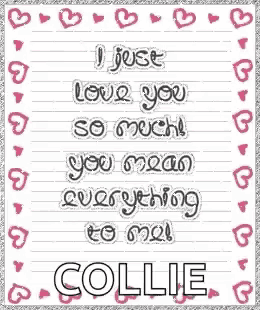 I just
love you
so much!
you mean
everything
to me!
COLLIE